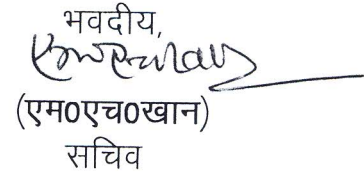 भवदीय,
(एम0एच0खान)
सचिव